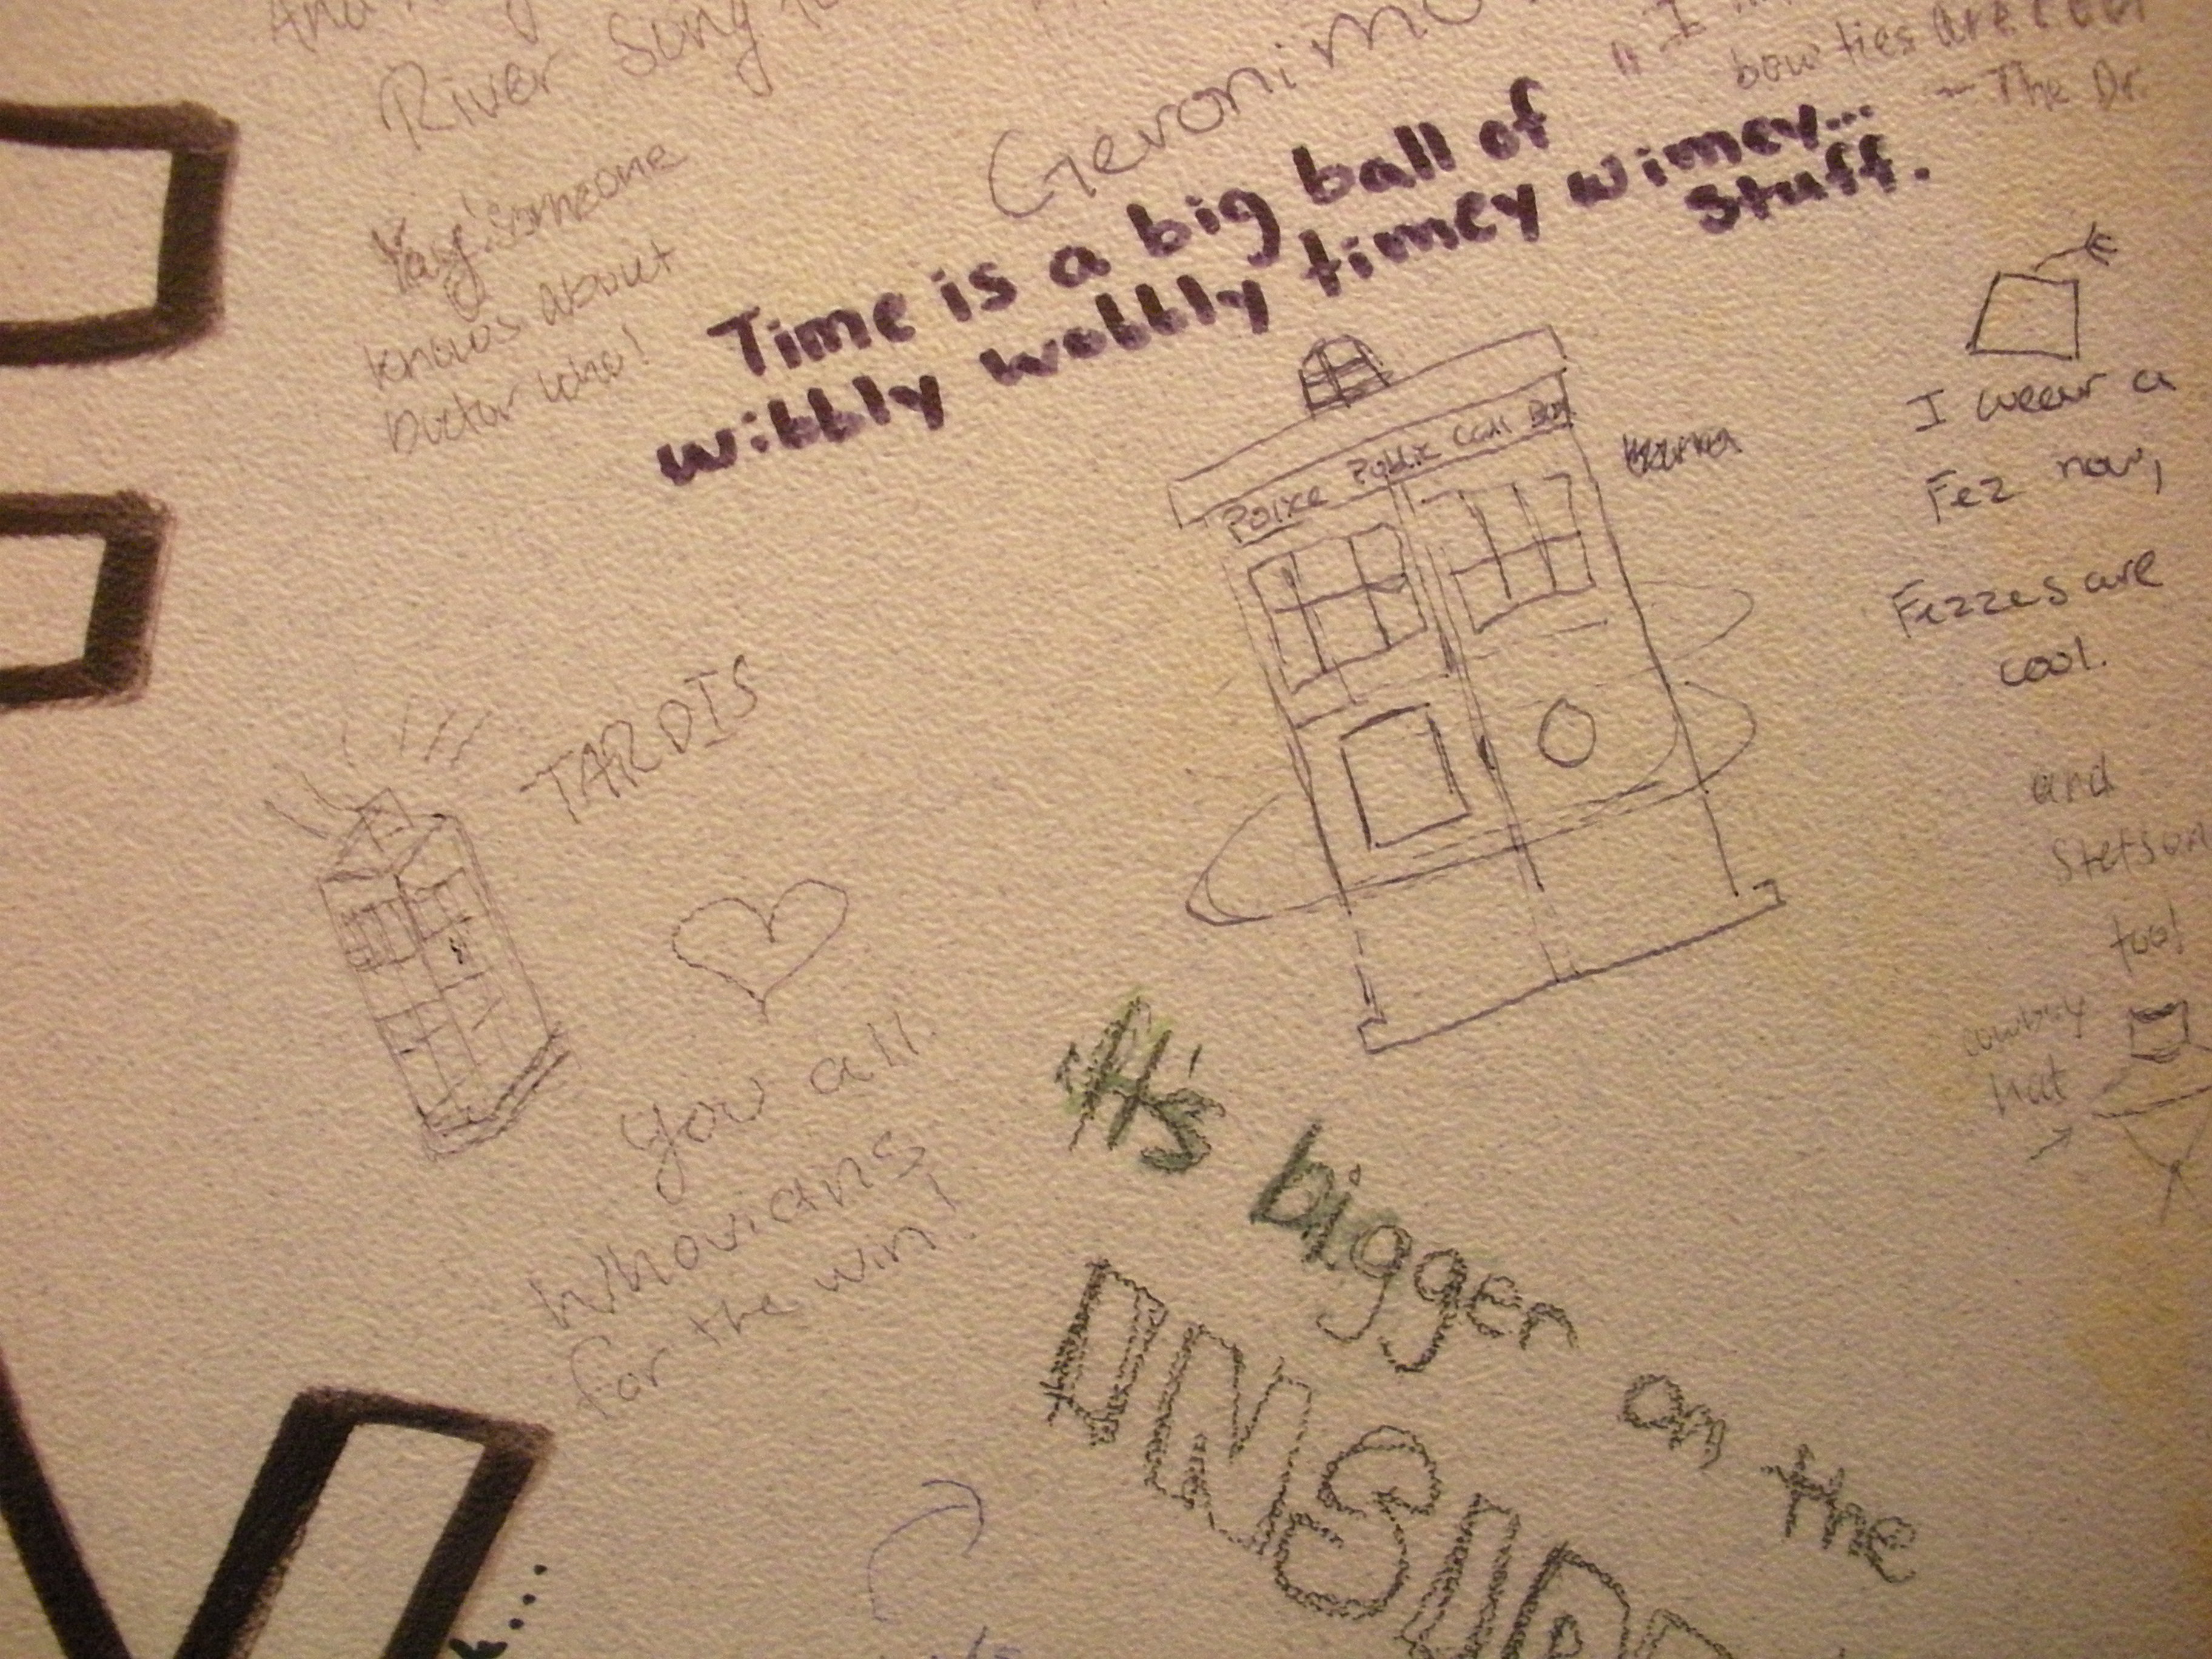 River Song
Geronimo
bow ties are cool
~ The Dr.
Yay! someone
knows about
Doctor who!
Time is a big ball of
wibbly wobbly timey wimey...
Stuff.
Police Public Call Box
I wear a
Fez now,
Fezzes are
cool.
and
Stetson
too!
cowboy
hat
TARDIS
you all.
Whovians
for the win!
It's bigger on the
INSIDE